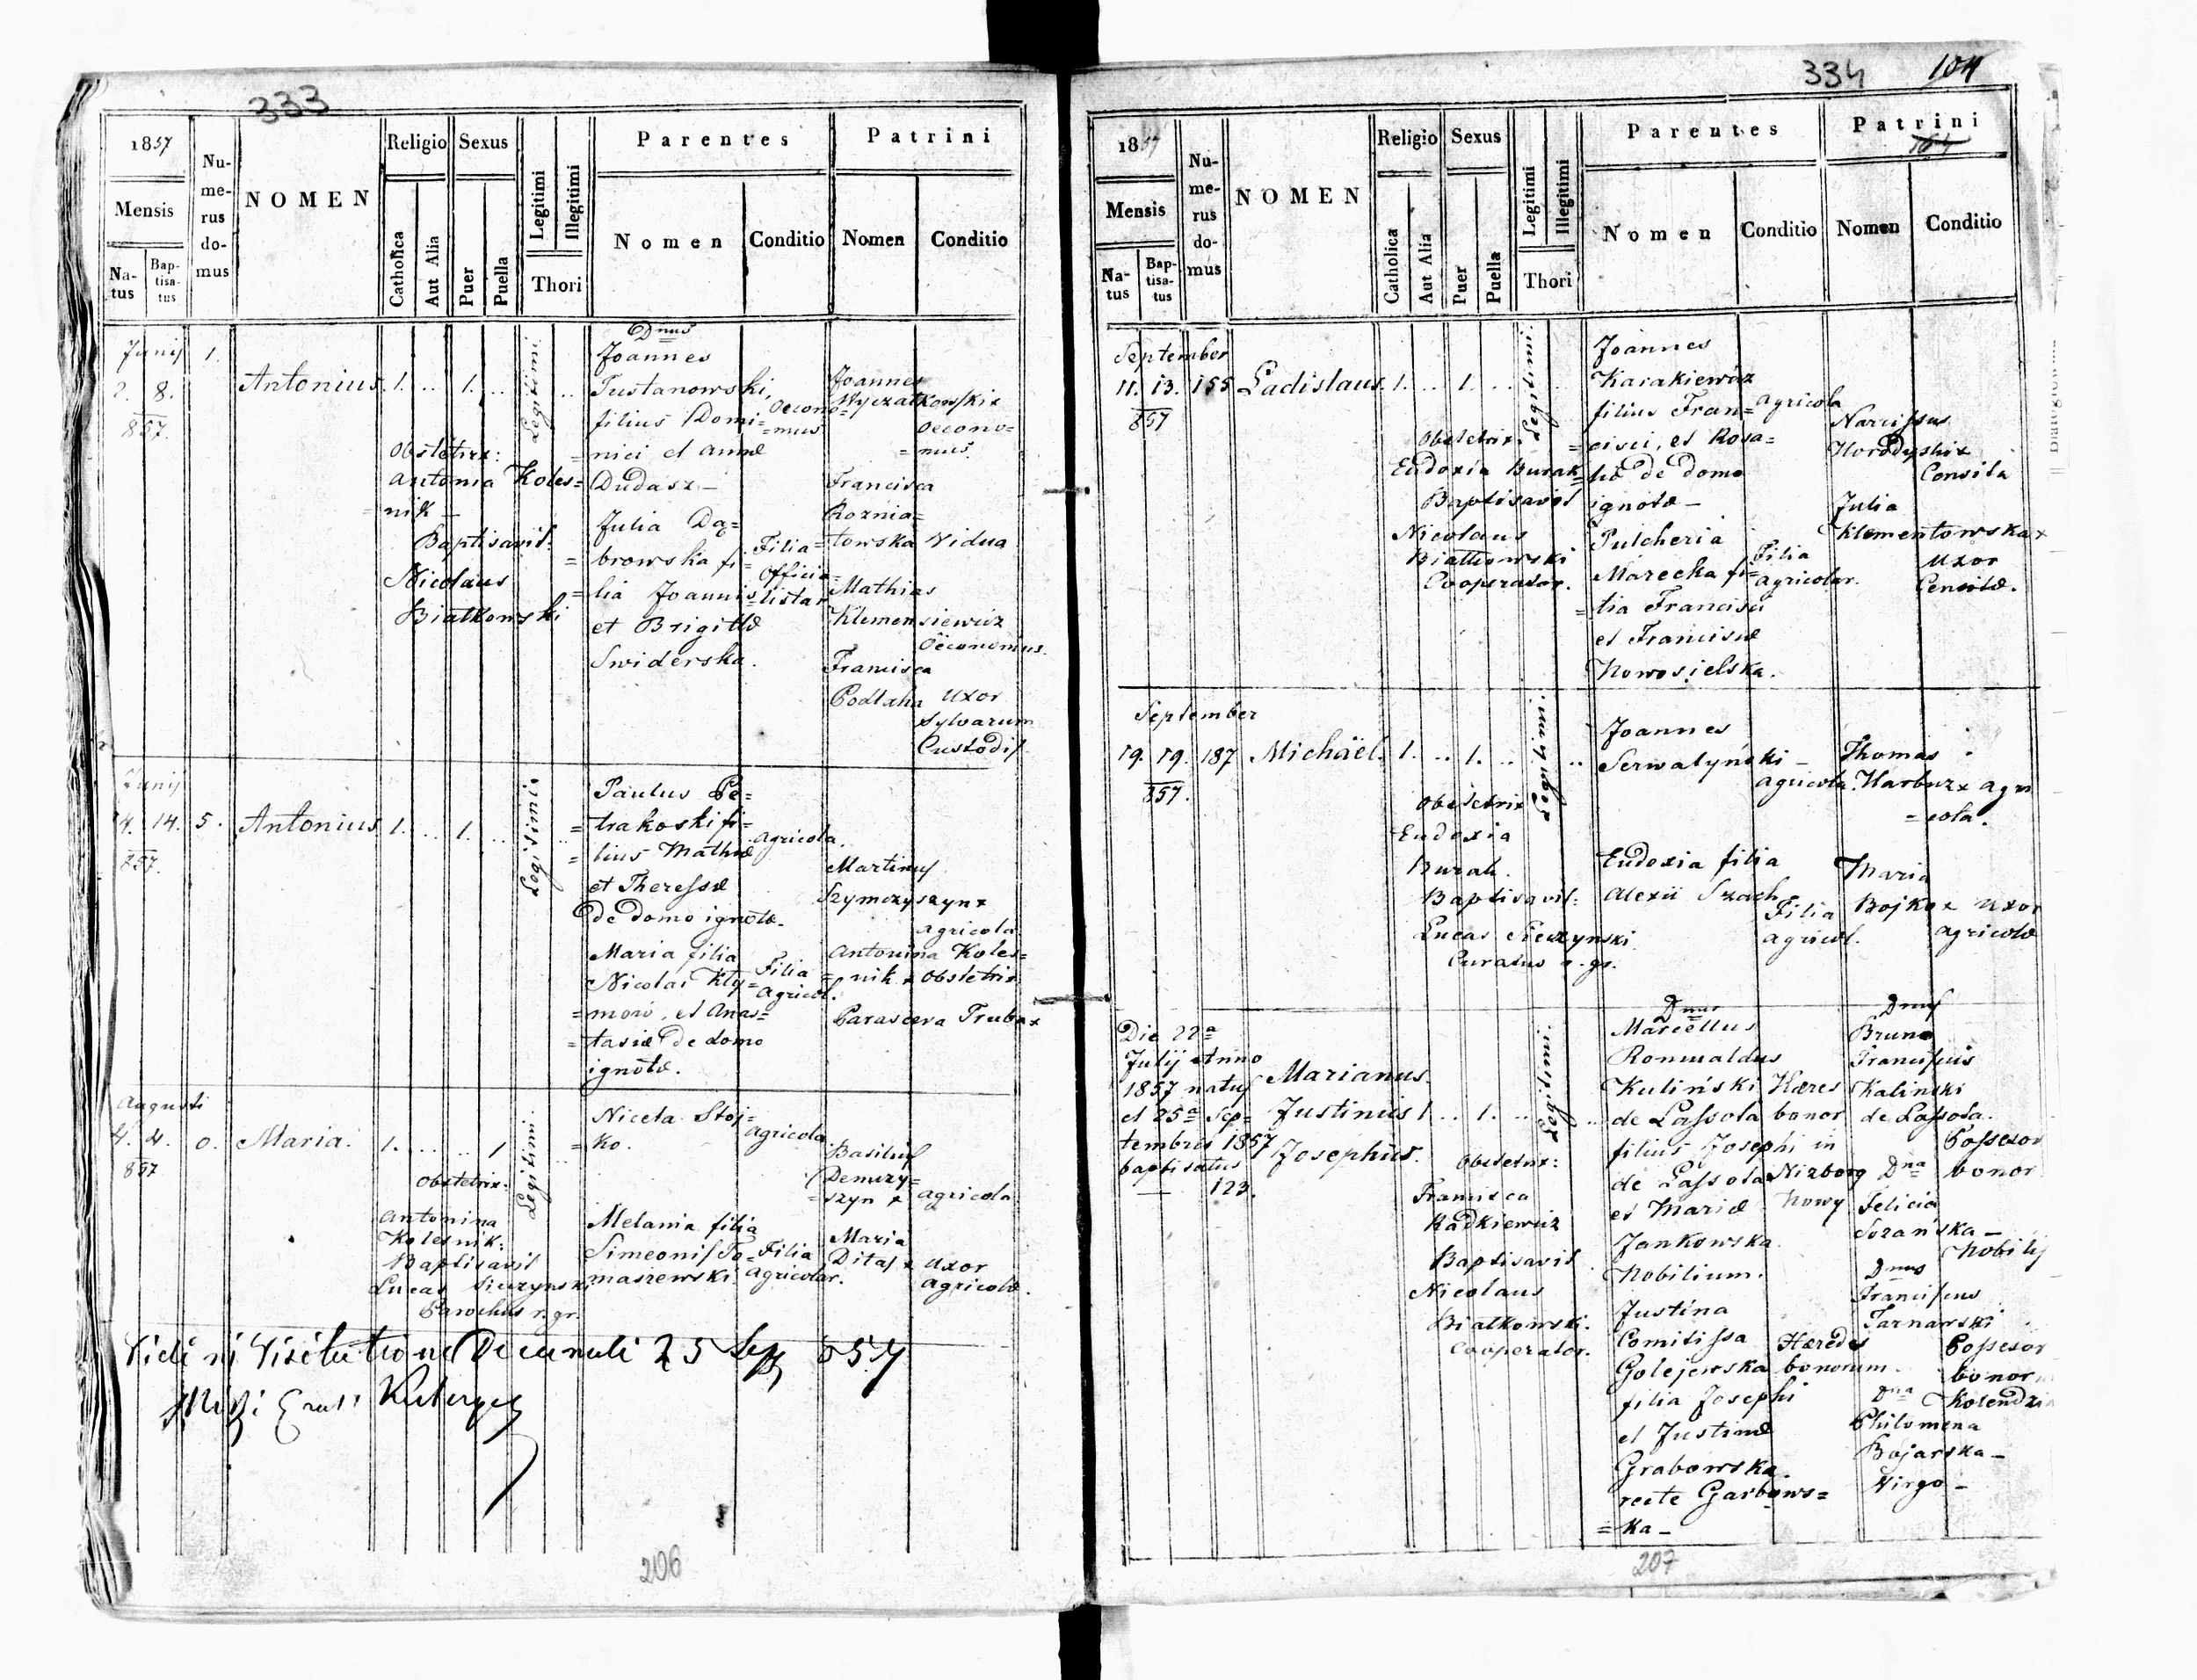 333
1857
Mensis
Na-
tus
Bap-
tisa-
tus
Nu-
me-
rus
do-
mus
NOMEN
Religio
Catholica
Aut Alia
Sexus
Puer
Puella
Legitimi
Illegitimi
Thori
Parentes
Nomen
Conditio
Patrini
Nomen
Conditio
Junij
2. 8.
857.
1.
Antonius.
1. ..
1. ..
Legitimi
..
Obstetrix:
Antonia Koles=
=nik —
Baptisavit:
Nicolaus
Białkowski
Dnus
Joannes
Tustanowski,
filius Domi=
=nici et Annæ
Dudasz —
Julia Dą=
=browska fi=
=lia Joannis
et Brigittæ
Swiderska.
Oecono=
=mus
Filia
Officia=
listar
Joannes
Wyczałkowski x
Oecono=
=mus.
Francisca
Roznia=
towska Vidua
Mathias
Klemensiewicz
Oëconomus.
Francisca
Podlaha Uxor
Sylvarum
Custodis
Junij
14. 14.
857.
5.
Antonius
1. ..
1. ..
Legitimi
Paulus Pe=
=trakoski fi=
=lius Mathiæ
et Theressæ
de domo ignotæ.
Maria filia
Nicolai Kły=
=mow, et Anas=
=tasiæ de domo
ignotæ.
agricola.
Filia
agricol.
Martinus
Szymczyszyn x
agricola
Antonina Koles=
=nik x Obstetrix
Parasceva Trubax
Augusti
4. 4.
857
0.
Maria.
1. ..
.. 1
Legitimi
Obstetrix:
Antonina
Kolesnik:
Baptisavit
Lucas Sieczynski
Parochus r. gr.
Niceta Stoj=
=ko.
agricola
Melania filia
Simeonis To=
maszewski
Filia
agricolar.
Basilius
Demczy=
=szyn x agricola
Maria
Ditas x Uxor
agricolæ.
Vidi in Visitatione Decanali 25 Sep 857
206
334
104
1857
Mensis
Na-
tus
Bap-
tisa-
tus
Nu-
me-
rus
do-
mus
NOMEN
Religio
Catholica
Aut Alia
Sexus
Puer
Puella
Legitimi
Illegitimi
Thori
Parentes
Nomen
Conditio
Patrini
Nomen
Conditio
September
11. 13. 155
857
Ladislaus.
1. ..
1. ..
Legitimi
Obstetrix.
Eudoxia Burak
Baptisavit
Nicolaus
Białkowski
Cooperator.
Joannes
Karakiewicz
filius Fran=
=cisci, et Rosa=
liæ de domo
ignotæ —
Pulcheria
Marecka fi=
=lia Francisci
et Franciscæ
Nowosielska.
agricola
Filia
agricolar.
Narcissus
Horodyski x
Consita
Julia
Klementowska x
Uxor
Censitæ.
September
19. 19. 187
857.
Michäel.
1. ..
1. ..
Legitimi
Obstetrix
Eudoxia
Burak.
Baptisavit:
Lucas Sieczynski
Curatus r. gr.
Joannes
Serwatyński —
agricola.
Eudoxia filia
Alexii Szach
Filia
agricol.
Thomas
Harbuz x agri
=cola.
Maria
Bojko x Uxor
agricolæ
Die 22a
Julij Anno
1857 natus
et 25a Sep=
tembris 1857
baptisatus
— 123.
Marianus
Justinus
Josephus.
1 ..
1. ..
Legitimi
Obstetrix:
Francisca
Radkiewicz
Baptisavit
Nicolaus
Białkowski.
Cooperator.
Dnus
Marcellus
Romualdus
Kuliński
de Lassota
filius Josephi
de Lassota
et Mariæ
Jankowska
Nobilium.
Justina
Comitissa
Golejewska
filia Josephi
et Justinæ
Grabowska.
recte Garbows=
=ka —
Hæres
bonor
in
Nizborg
Nowy
Hæredes
bonorum.
Dnus
Bruno
Franciscus
Kalinski
de Lassota.
Possesor
bonor
Dna
Felicia
Sozańska —
Nobilis
Dnus
Franciscus
Tarnawski
Possesor
bonor
Kolendzia
Dna
Philomena
Bojarska —
Virgo —
207